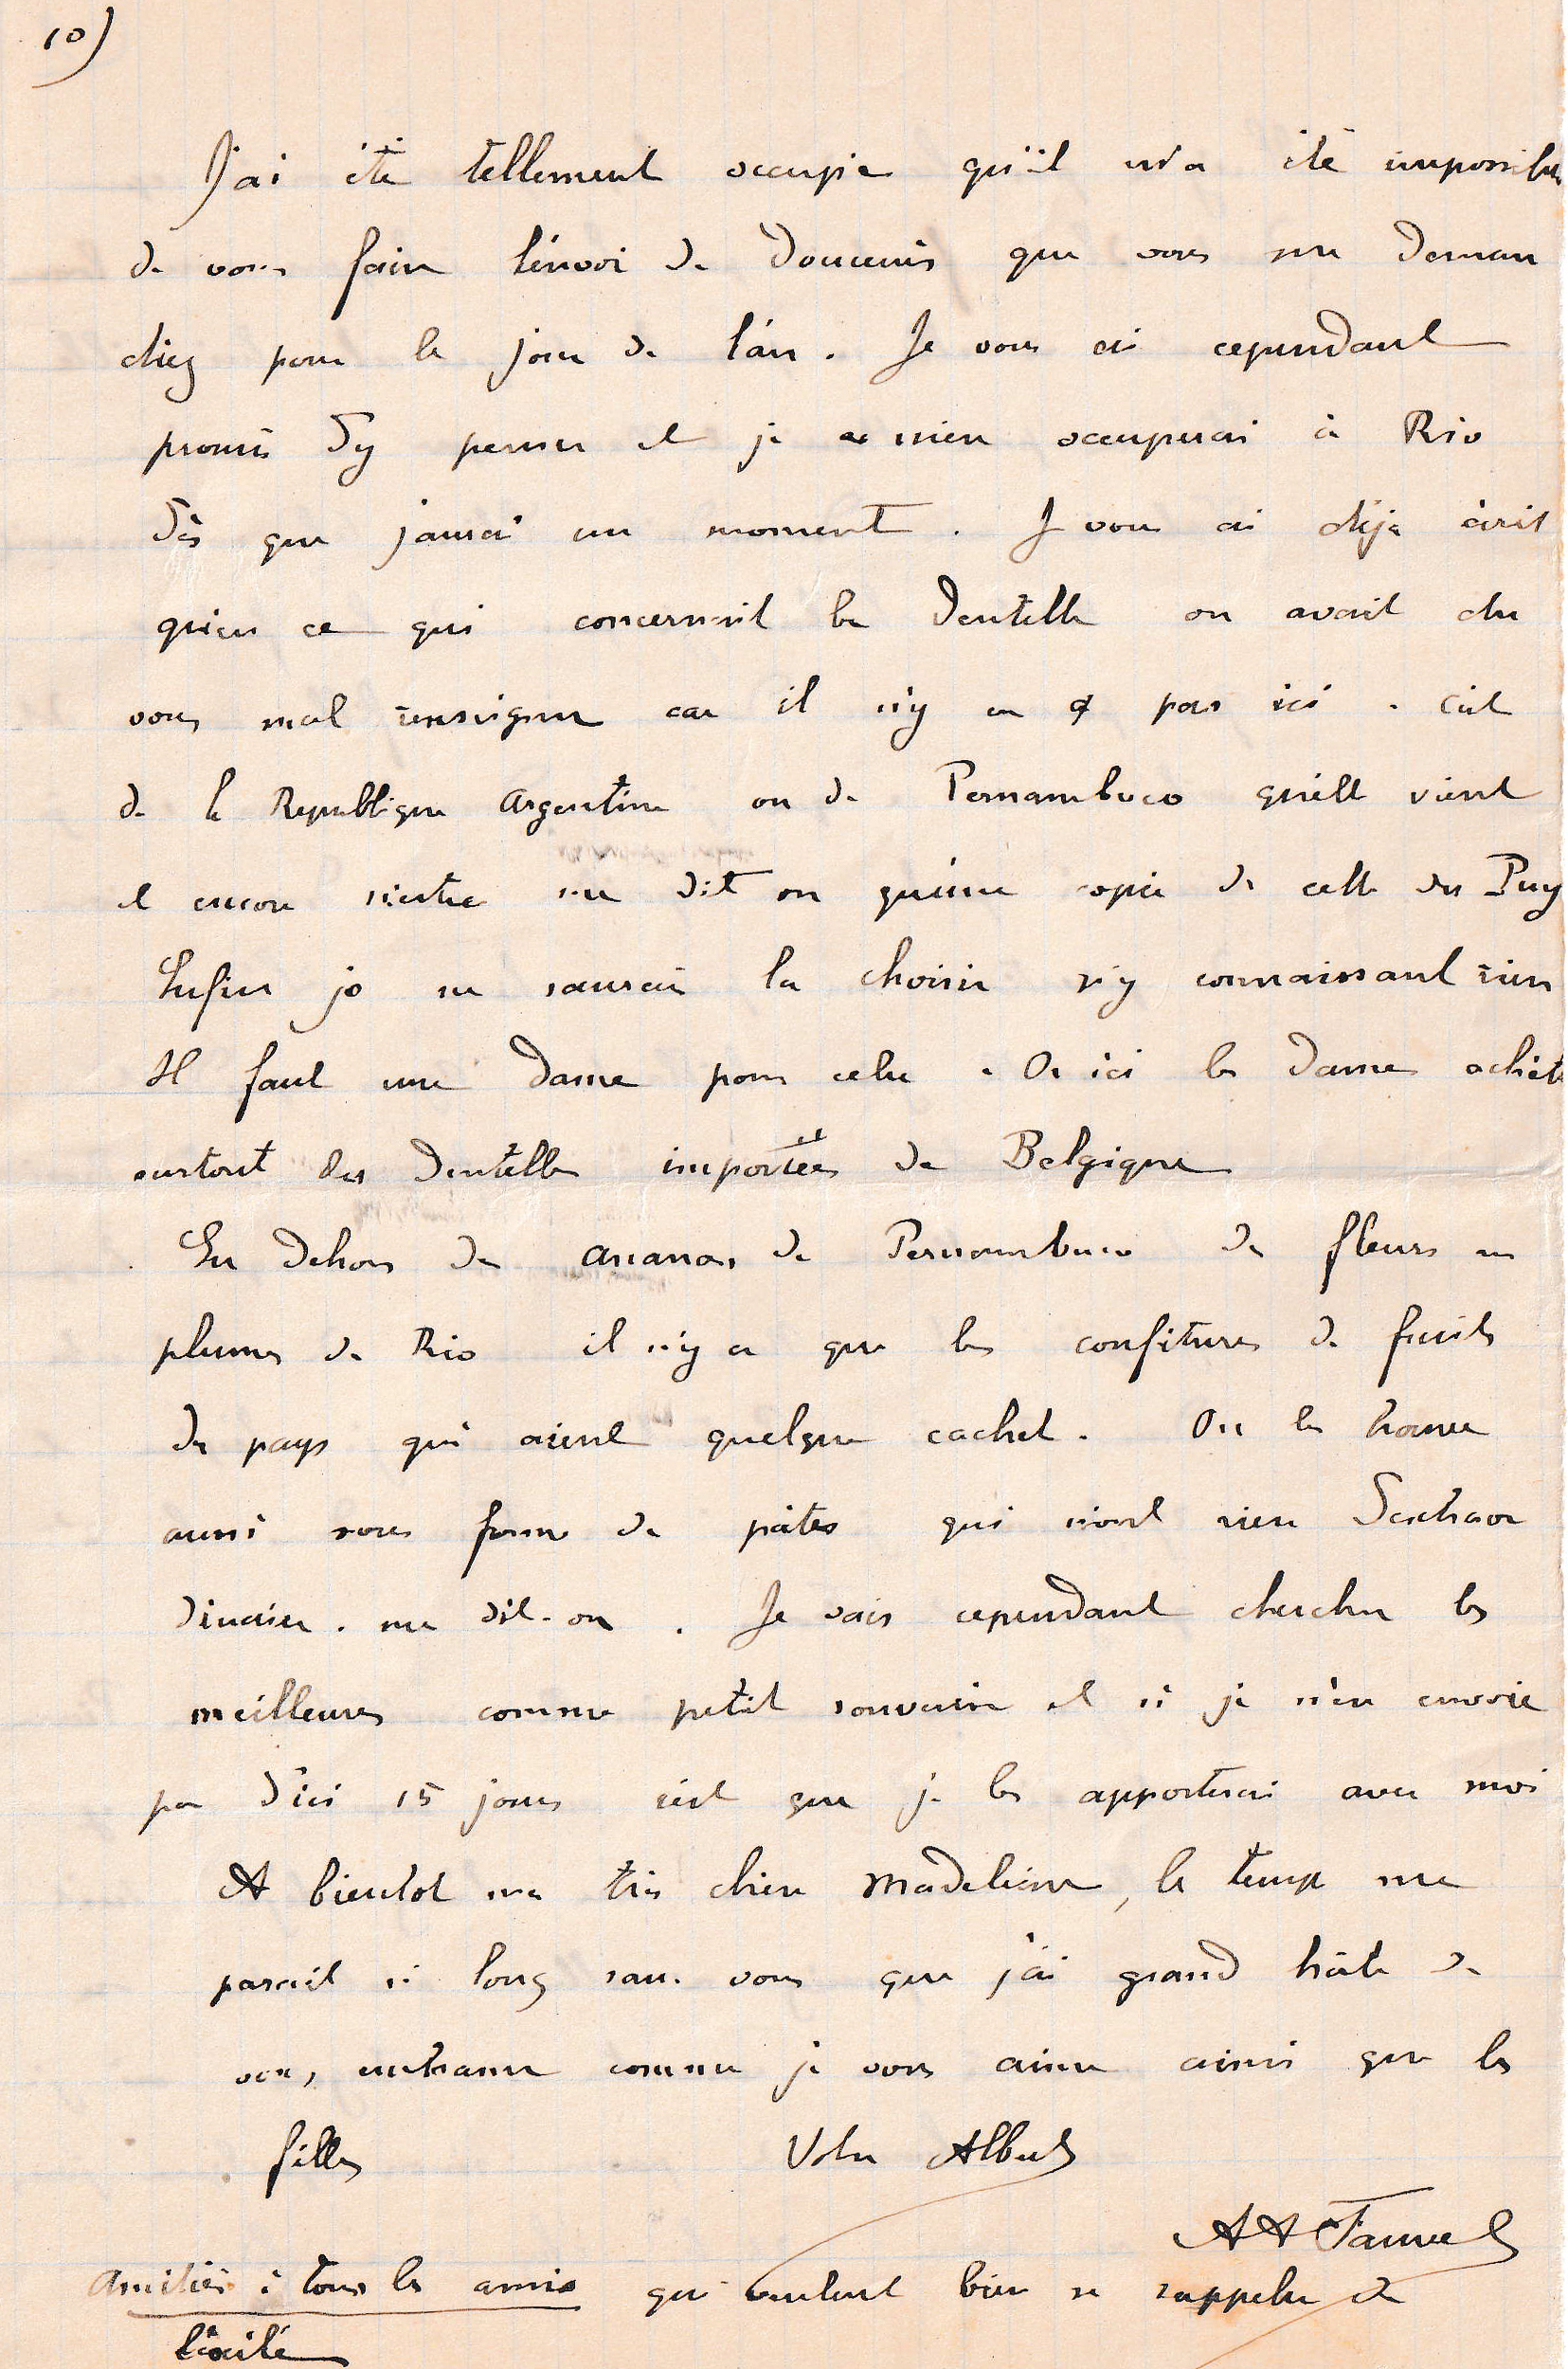 10)
J'ai été tellement occupé qu'il m'a été impossible
de vous faire l'envoi de douceurs que vous me deman
diez pour le jour de l'an. Je vous ai cependant
promis d'y penser et je m'en occuperai à Rio
dès que j'aurai un moment. Je vous ai déjà écrit
qu'en ce qui concernait la dentelle on avait du
vous mal renseigner car il n'y en a pas ici. C'est
de la Republique Argentine ou de Pernambuco qu'elle vient
et encore n'est ce me dit on qu'une copie de celle du Puy
Enfin je ne saurais la choisir n'y connaissant rien
Il faut une dame pour cela. Or ici les dames achète
surtout des dentelles importées de Belgique
En dehors des ananas de Pernambuco de fleurs en
plumes de Rio il n'y a que les confitures de fruits
du pays qui aient quelque cachet. On les trouve
aussi sous forme de pâtes qui n'ont rien d'extraor
dinaire. me dit-on. Je vais cependant chercher les
meilleures comme petit souvenir et si je n'en envoie
pas d'ici 15 jours c'est que je les apporterai avec moi
A bientot ma très chère Madeleine, le temps me
parait si long sans vous que j'ai grand hâte de
vous embrasser comme je vous aime ainsi que les
filles Votre Albert
AA Fauvel
Amitiés à tous les amis qui veulent bien se rappeler de
l'exilé